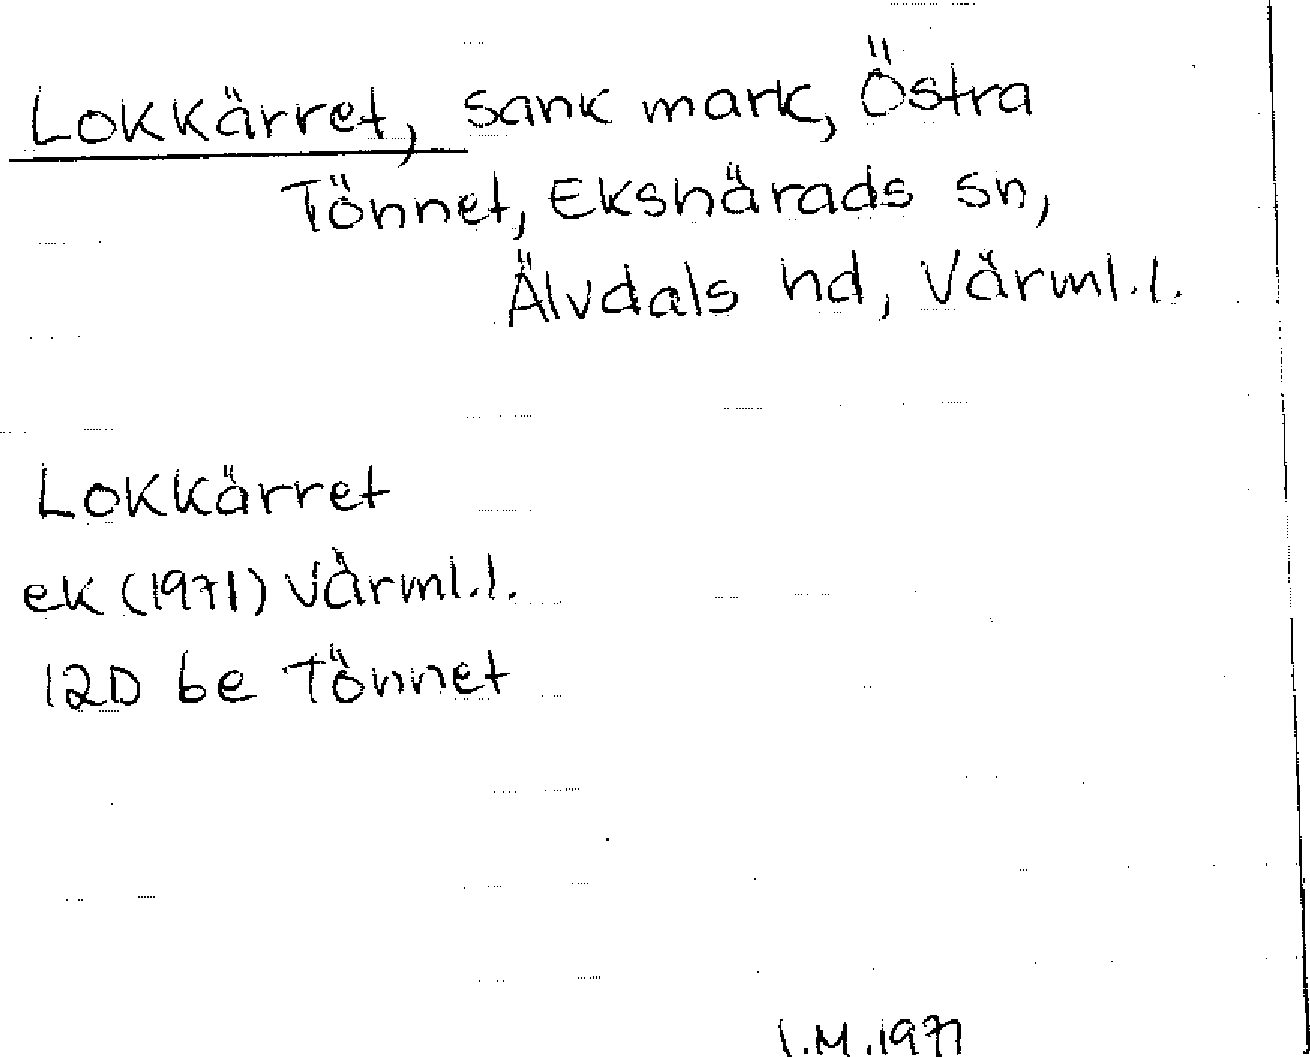 Lokkärret, sank mark, Östra
Tönnet, Ekshärads sn,
Älvdals hd, Värml.l.
Lokkärret
ek (1971) Värml.l.
12D be Tönnet
I.M.1977